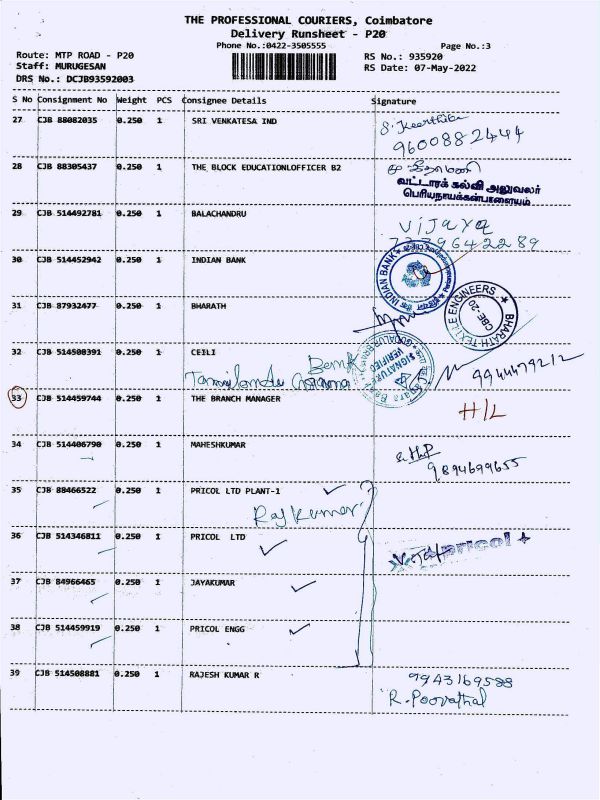 THE PROFESSIONAL COURIERS, Coimbatore
Delivery Runsheet - P20
Phone No.:0422-3505555
Page No.:3
Route: MTP ROAD - P20
RS No.: 935920
Staff: MURUGESAN
RS Date: 07-May-2022
DRS No.: DCJB93592003
S No Consignment No Weight PCS Consignee Details Signature
27 CJB 88082035 0.250 1 SRI VENKATESA IND
S. Keerthika
9600882444
28 CJB 88305437 0.250 1 THE BLOCK EDUCATIONLOFFICER B2
வட்டாரக் கல்வி அலுவலர்
பெரியநாயக்கன்பாளையம்
29 CJB 514492781 0.250 1 BALACHANDRU
Vijaya
30 CJB 514452942 0.250 1 INDIAN BANK
INDIAN BANK
31 CJB 87932477 0.250 1 BHARATH
BHARATH TEXTILE ENGINEERS
CBE-20
32 CJB 514508391 0.250 1 CEILI
Tamilnadu Bank
SIGNATURE VERIFIED
9944479212
33 CJB 514459744 0.250 1 THE BRANCH MANAGER
H/L
34 CJB 514406790 0.250 1 MAHESHKUMAR
9894699655
35 CJB 88466522 0.250 1 PRICOL LTD PLANT-1
Raj Kumar
36 CJB 514346811 0.250 1 PRICOL LTD
pricol
37 CJB 84966465 0.250 1 JAYAKUMAR
38 CJB 514459919 0.250 1 PRICOL ENGG
39 CJB 514508881 0.250 1 RAJESH KUMAR R
9943169588
R. Poovathal